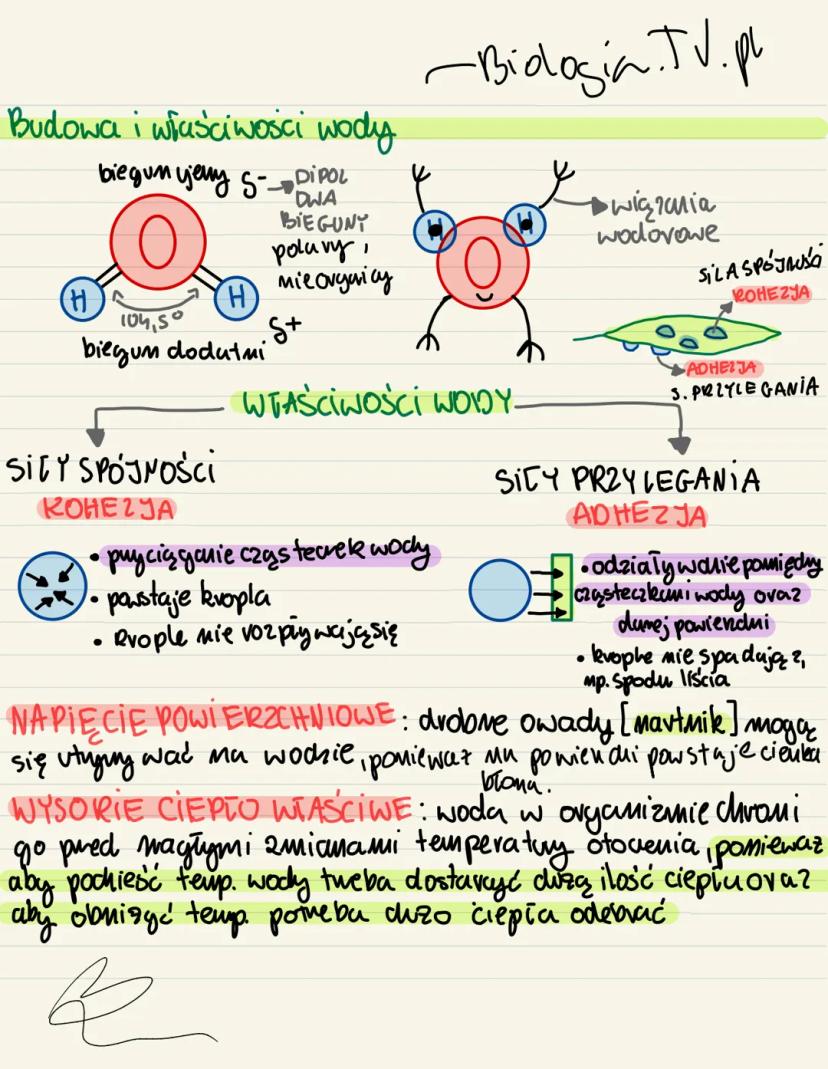 Biologia.TV.pl
Budowa i właściwości wody
biegun ujemy δ-
DIPOL
DWA
BIEGUNY
polarny,
nieorganiczny
O
H
H
104,5°
δ+
biegun dodatni
H
H
O
wiązania
wodorowe
SIŁA SPÓJNOŚCI
KOHEZJA
ADHEZJA
S. PRZYLEGANIA
WŁAŚCIWOŚCI WODY
SIŁY SPÓJNOŚCI
KOHEZJA
• przyciąganie cząsteczek wody
• powstaje kropla
• krople nie rozpływają się
SIŁY PRZYLEGANIA
ADHEZJA
• odziaływanie pomiędzy
cząsteczkami wody oraz
danej powierzchni
• krople nie spadają z,
np. spodu liścia
NAPIĘCIE POWIERZCHNIOWE: drobne owady [nartnik] mogą
się utrzymywać na wodzie, ponieważ na powierzchni powstaje cienka
błona.
WYSOKIE CIEPŁO WŁAŚCIWE: woda w organizmie chroni
go przed nagłymi zmianami temperatury otoczenia, ponieważ
aby podnieść temp. wody trzeba dostarczyć dużą ilość ciepła oraz
aby obniżyć temp. potrzeba dużo ciepła odebrać